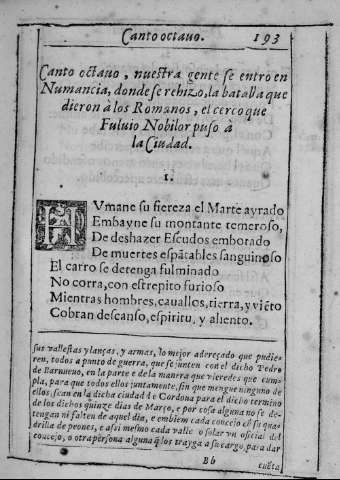 Canto octauo. 193
Canto octauo, nuestra gente se entro en
Numancia, donde se rehizo, la batalla que
dieron à los Romanos, el cerco que
Fuluio Nobilor puso à
la Ciudad.
1.
HVmane su fiereza el Marte ayrado
Embayne su montante temeroso,
De deshazer Escudos embotado
De muertes espãtables sanguinoso
El carro se detenga fulminado
No corra, con estrepito furioso
Mientras hombres, cauallos, tierra, y viẽto
Cobran descanso, espiritu, y aliento.
sus vallestas y lanças, y armas, lo mejor adereçado que pudie-
ren, todos a punto de guerra, que se junten con el dicho Pedro
de Barnueuo, en la parte e de la manera que vieredes que cum-
pla, para que todos ellos juntamente, sin que mengue ninguno de
ellos, sean en la dicha ciudad de Cordoua para el dicho termino
de los dichos quinze dias de Março, e por cosa alguna no se de-
tengan ni falten de aquel dia, e embiem cada concejo cõ su qua-
drilla de peones, e assi mesmo cada valle o solar vn oficial del
concejo, o otra persona alguna q̃ los trayga a su cargo, para dar
Bb cuẽta